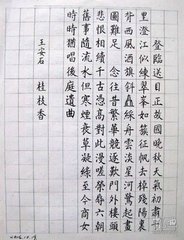 登臨送目正故國晚秋天氣初肅千
里澄江似練翠峯如簇征帆去棹殘陽裏
背西風酒旗斜矗綵舟雲淡星河鷺起畫
圖難足 念往昔繁華競逐歎門外樓頭
悲恨相續千古憑高對此漫嗟榮辱六朝
舊事隨流水但寒煙衰草凝綠至今商女
時時猶唱後庭遺曲
王安石 桂枝香